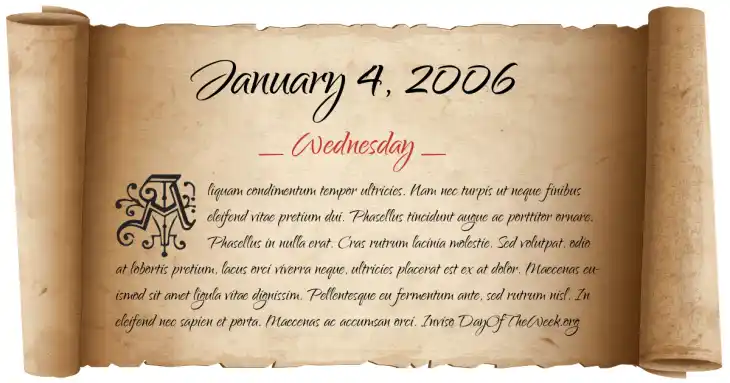 January 4, 2006
_ Wednesday _
Aliquam condimentum tempor ultricies. Nam nec turpis ut neque finibus
eleifend vitae pretium dui. Phasellus tincidunt augue ac porttitor ornare.
Phasellus in nulla erat. Cras rutrum lacinia molestie. Sed volutpat, odio
at lobortis pretium, lacus orci viverra neque, ultricies placerat est ex at dolor. Maecenas eu-
ismod sit amet ligula vitae dignissim. Pellentesque eu fermentum ante, sed rutrum nisl. In
eleifend nec sapien et porta. Maecenas ac accumsan orci. Inviso DayOfTheWeek.org